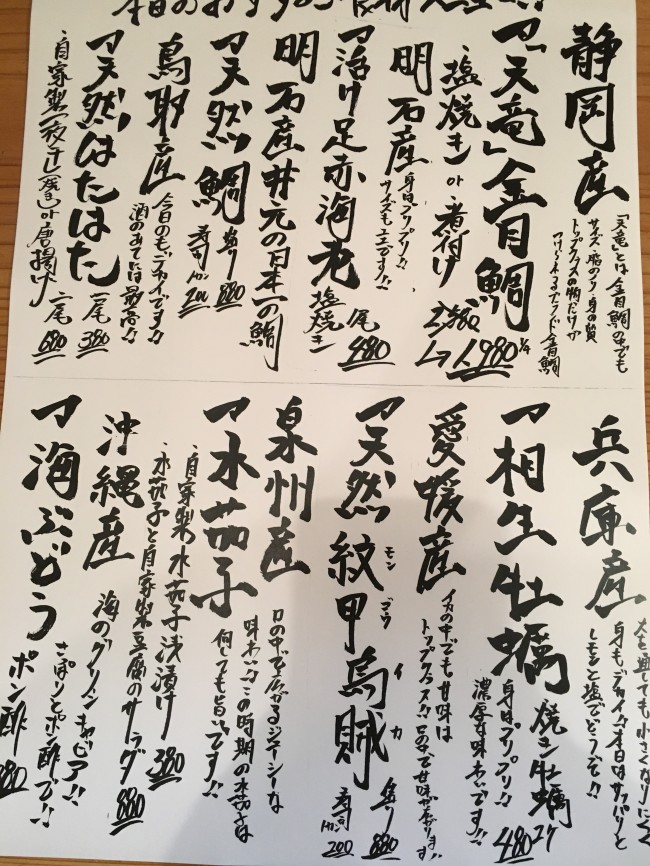 本日のおすすめ
静岡産
「天竜」とは金目鯛の中でも
サイズ・脂のり・身の質
トップクラスの物だけが
つけられるブランド金目鯛
「天竜」金目鯛
・塩焼き or 煮付け
2,580
→1,980
明石産
身はプリプリ!!
サイズも
活け足赤海老
塩焼き
1尾
480
明石産 井元の日本一の鯛
天然鯛
造り
880
寿司
200
鳥取産
今日のもデカイです!!
酒のあてには最高!!
天然はたはた
一尾
380
・自家製一夜干し(唐墨) or 唐揚げ
二尾
680
兵庫産
火を通しても小さくなりにくく
身もデカイ!!本日はサッパリと
レモンと塩でどうぞ!!
相生牡蠣
身はプリプリ!!
濃厚な味わいです!!
焼き牡蠣
2ケ
480
愛媛産
イカの中でも甘味は
トップクラス!!
天然紋甲烏賊
モンゴウイカ
造り
880
寿司
200
泉州産
口の中で広がるジューシーな
味わい!!この時期の水茄子は
何しても旨いです!!
水茄子
・自家製水茄子浅漬け
380
・水茄子と自家製豆腐のサラダ
880
沖縄産
海のグリーンキャビア!!
さっぱりとポン酢で!!
海ぶどう
ポン酢